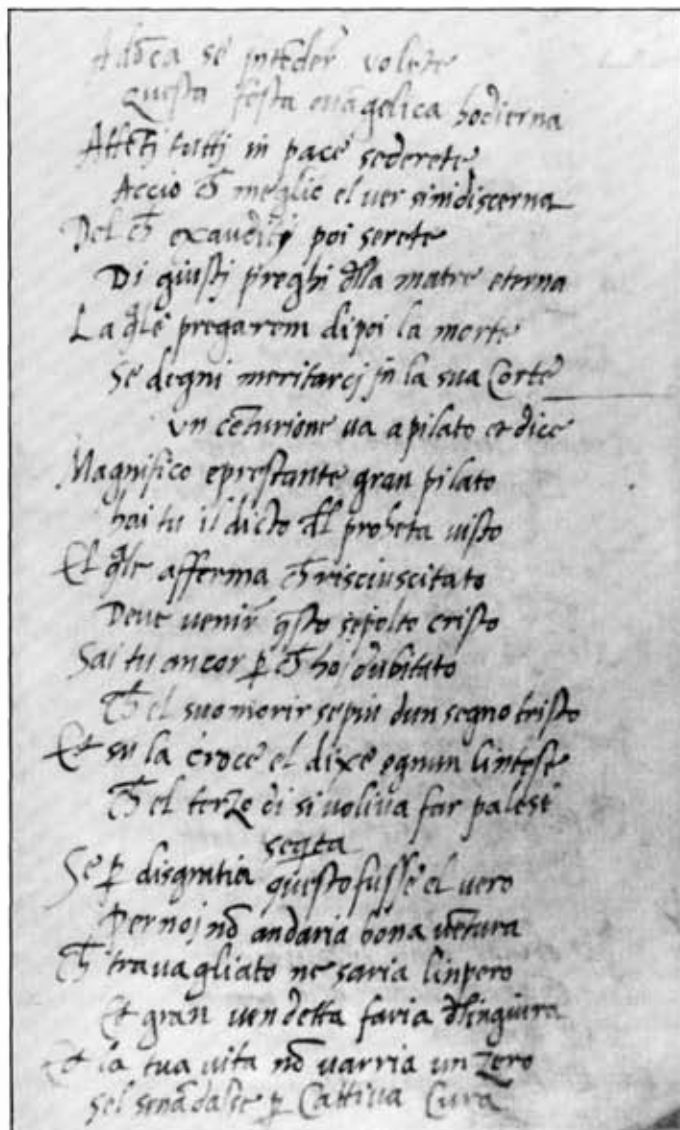 Adōca se intēder volete
Questa festa evāgelica hodierna
Attēti tutti in pace sederete
Accio ch̄ meglio el ver sinidiscerna
Del ch̄ exauditi poi serete
Di giusti preghi d̄lla matre eterna
La q̄le pregarem dipoi la morte
Se degni meritarcj jn la sua Corte
Un cēturione va apilato et dice
Magnifico eprestante gran pilato
hai tu il dicto d̄l propheta visto
El q̄le afferma ch̄ risciuscitato
Deve venir q̄sto sepolto cristo
Sai tu ancor p̄ ch̄ hoj dubitato
Ch̄ el suo morir sepiu dun segno tristo
Et su la croce el dixe ognun lintese
Ch̄ el terzo di si voliva far palese
segta
Se p̄ disgratia questo fusse el vero
Per noj nō andaria bona vētura
Ch̄ travagliato ne saria linpero
Et gran vendetta faria d̄lingiura
Et la tua vita nō varria un zero
Sel p̄ Cattiva Cura